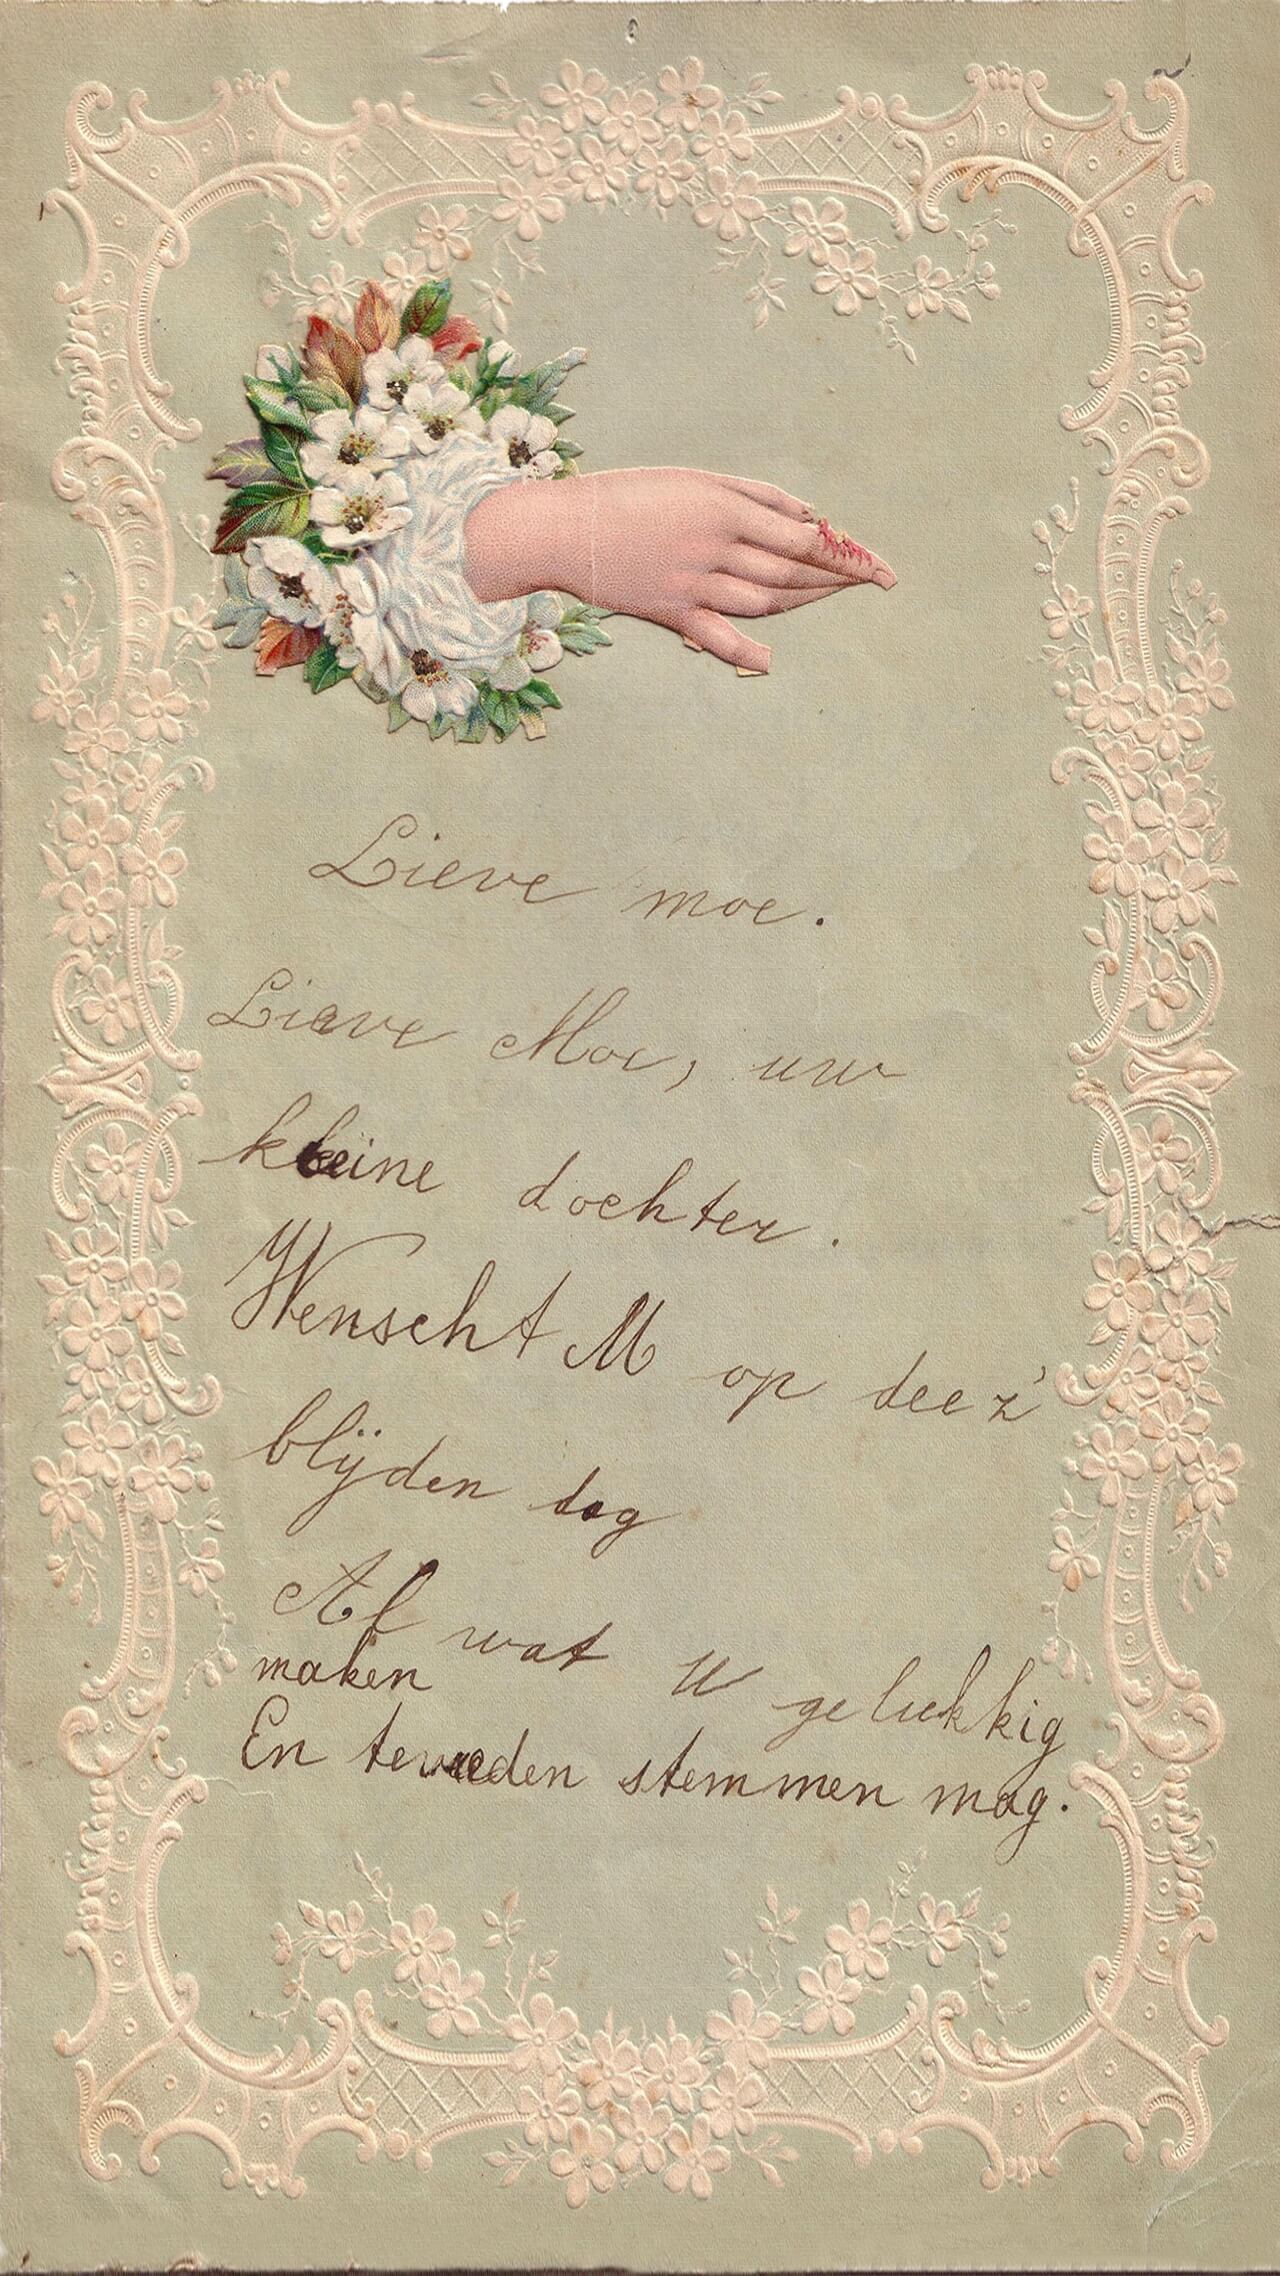 Lieve moe.
Lieve Moe, uw
kleine dochter.
Wenscht M op deez'
blijden dag
Al wat U gelukkig
maken
En tevreden stemmen mag.